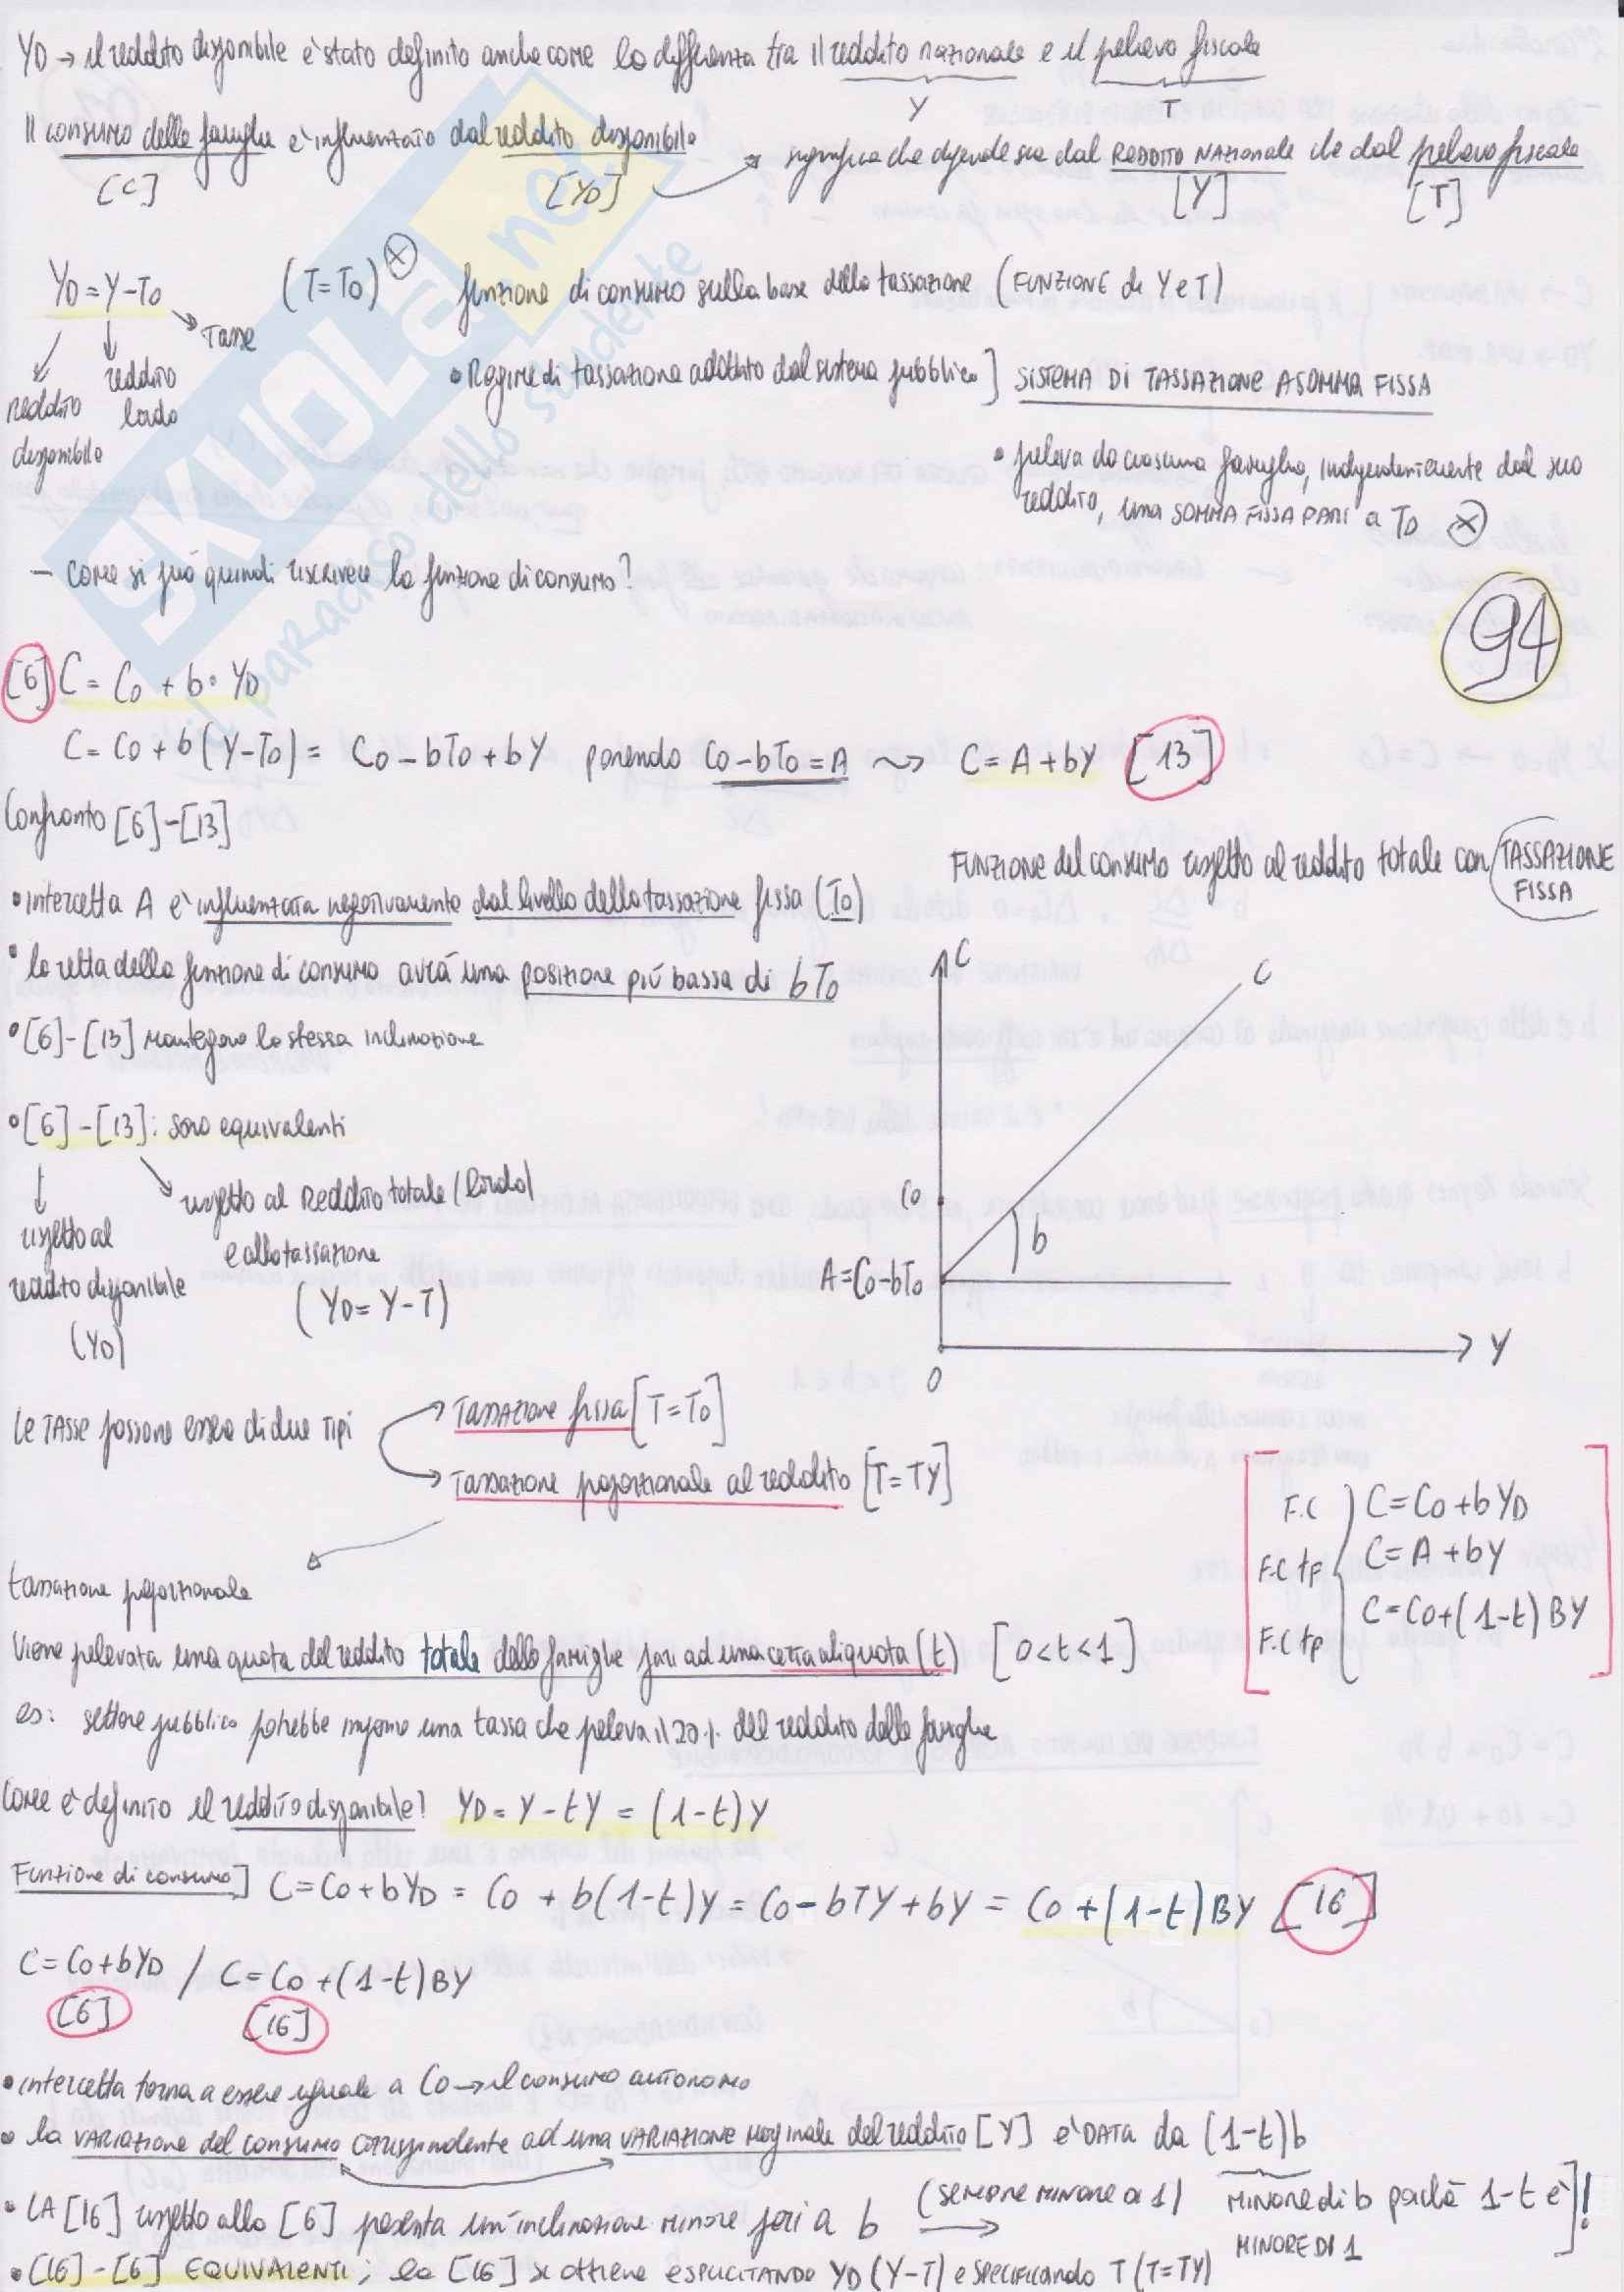 YD → il reddito disponibile è stato definito anche come la differenza tra il reddito nazionale e il prelievo fiscale
Y T
Il consumo delle famiglie è influenzato dal reddito disponibile → significa che dipende sia dal REDDITO NAZIONALE che dal prelievo fiscale
[C] [YD] [Y] [T]
YD = Y - T0 (T = T0) ⊗ funzione di consumo sulla base della tassazione (FUNZIONE di Y e T)
Tasse
reddito disponibile
reddito lordo
• Regime di tassazione adottato dal sistema pubblico] SISTEMA DI TASSAZIONE A SOMMA FISSA
• preleva da ciascuna famiglia, indipendentemente dal suo
reddito, una SOMMA FISSA PARI a T0 ⊗
- Come si può quindi riscrivere la funzione di consumo?
94
[6] C = C0 + b· YD
C = C0 + b(Y-T0) = C0 - bT0 + bY ponendo C0 - bT0 = A ⇝ C = A + bY [13]
Confronto [6]-[13]
FUNZIONE del consumo rispetto al reddito totale con TASSAZIONE
FISSA
• intercetta A è influenzata negativamente dal livello della tassazione fissa (T0)
• la retta della funzione di consumo avrà una posizione più bassa di bT0
• [6]-[13] mantengono la stessa inclinazione
• [6]-[13]: sono equivalenti
rispetto al
reddito disponibile
(YD)
rispetto al Reddito totale (lordo)
e alla tassazione
(YD = Y - T)
C
C
C0
b
A = C0 - bT0
0
Y
Le TASSE possono essere di due tipi
Tassazione fissa [T = T0]
Tassazione proporzionale al reddito [T = TY]
F.C C = C0 + bYD
F.C tf C = A + bY
F.C tp C = C0 + (1-t) BY
tassazione proporzionale
Viene prelevata una quota del reddito totale delle famiglie pari ad una certa aliquota (t) [0<t<1]
es: settore pubblico potrebbe imporre una tassa che preleva il 20% del reddito delle famiglie
Come è definito il reddito disponibile? YD = Y - tY = (1-t)Y
Funzione di consumo] C = C0 + bYD = C0 + b(1-t)Y = C0 - bTY + bY = C0 + (1-t)BY [16]
C = C0 + bYD / C = C0 + (1-t)BY
[6] [16]
• intercetta torna a essere uguale a C0 → il consumo autonomo
• la VARIAZIONE del consumo corrispondente ad una VARIAZIONE marginale del reddito [Y] è DATA da (1-t)b
• LA [16] rispetto alla [6] presenta un'inclinazione minore pari a b (SEMPRE MINORE a 1) → MINORE di b perché 1-t è]!
MINORE DI 1
• [16]-[6] EQUIVALENTI; la [16] si ottiene ESPLICITANDO YD (Y-T) e SPECIFICANDO T (T=TY)
SKUOLA.net
il paradiso dello studente